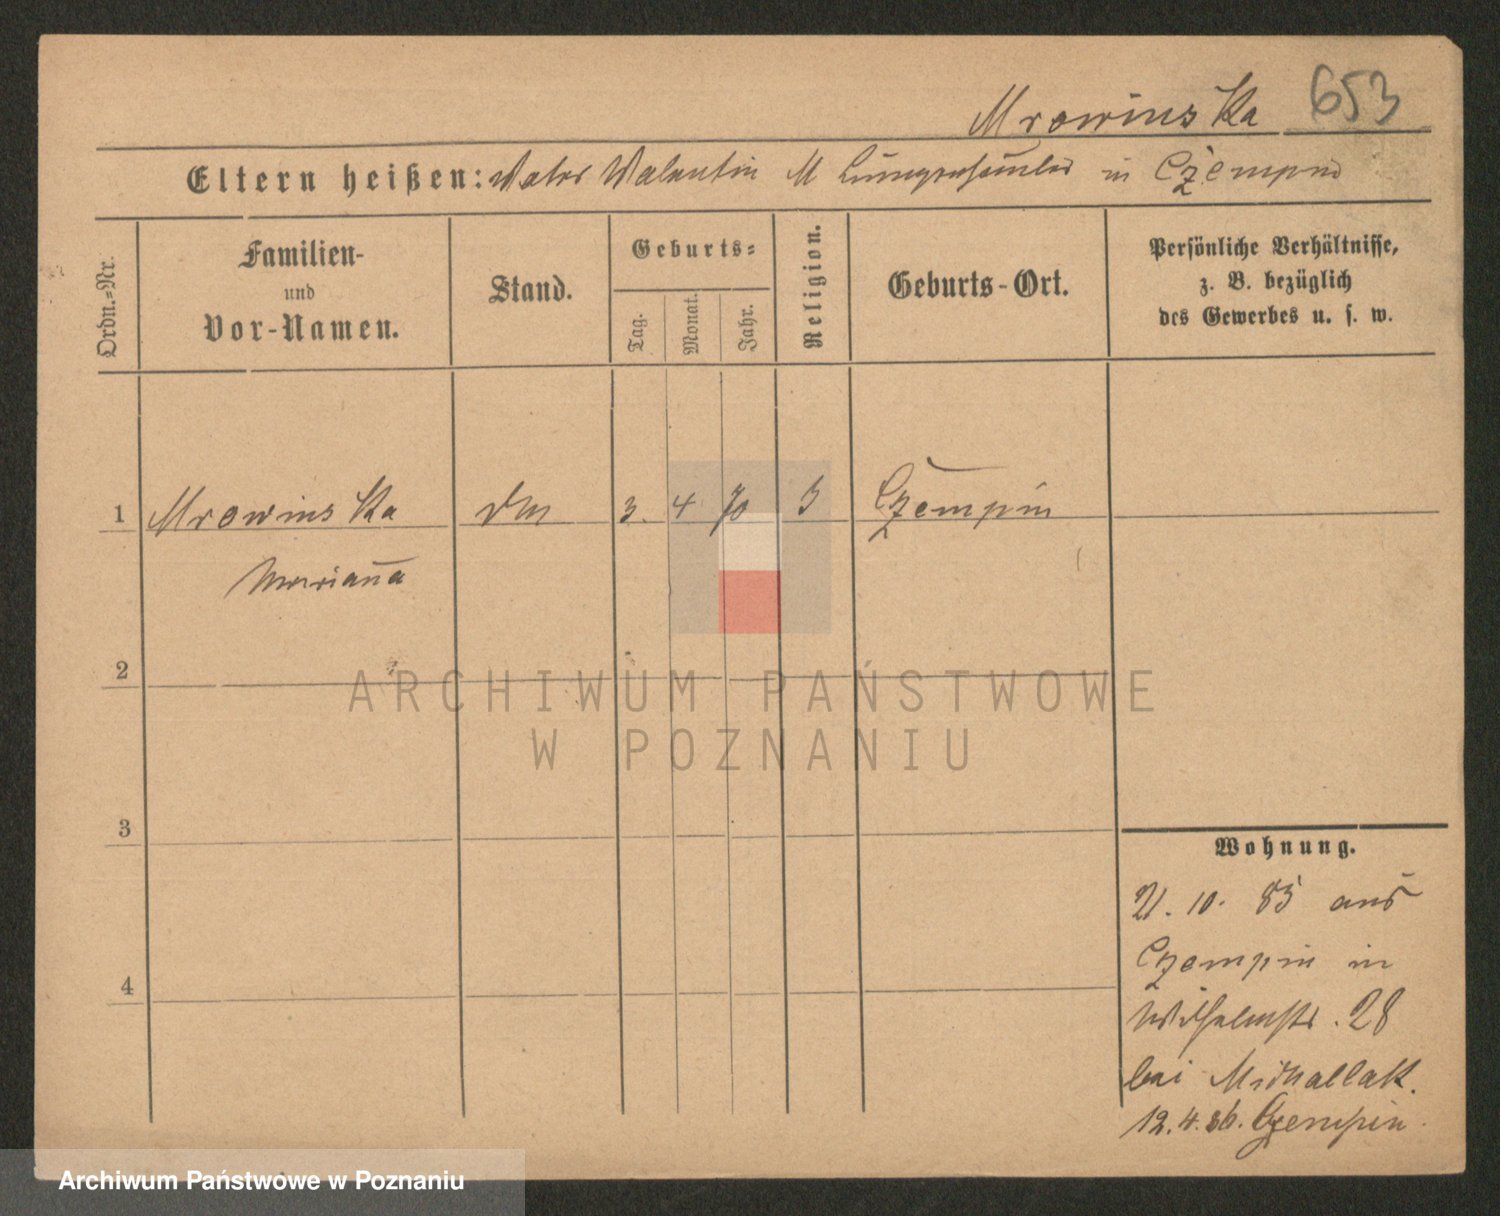 Mrowinska 653
Eltern heißen: Vater Valentin M in Czempin
Ordn.=Nr.
Familien-
und
Vor-Namen.
Stand.
Geburts=
Tag.
Monat.
Jahr.
Religion.
Geburts-Ort.
Persönliche Verhältnisse,
z. B. bezüglich
des Gewerbes u. s. w.
1 Mrowinska 3. 4 70 Czempin
Mariana
2
ARCHIWUM PAŃSTWOWE
W POZNANIU
3
4
Wohnung.
21. 10. 85 aus
Czempin in
Wilhelmstr. 28
bei Michallak.
12. 4. 86. Czempin.
Archiwum Państwowe w Poznaniu